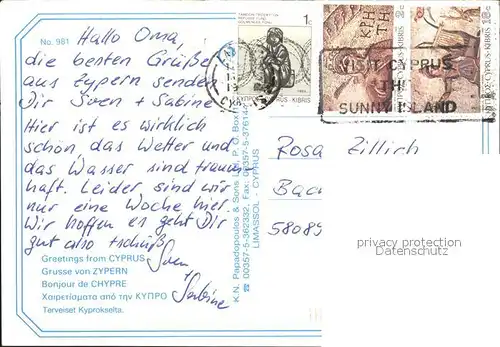 No. 981
Hallo Oma,
die besten Grüße
aus Zypern senden
Dir Sven + Sabine
Hier ist es wirklich
schön, das Wetter und
das Wasser sind traum
haft. Leider sind wir
nur eine Woche hier.
Wir hoffen es geht Dir
gut also tschüß
Sven
+
Sabine
Greetings from CYPRUS
Grusse von ZYPERN
Bonjour de CHYPRE
Χαιρετίσματα από την ΚΥΠΡΟ
Terveiset Kyprokselta.
K.N. Papadopoulos & Sons Ltd., P.O. Box
☎ 00357-5-362332, Fax: 00357-5-37614
LIMASSOL - CYPRUS
1c
KIBRIS
ΚΡΗ
ΤΗ
VISIT CYPRUS
THE
SUNNY ISLAND
Rosa Zillich
Bac
58089
privacy protection
Datenschutz